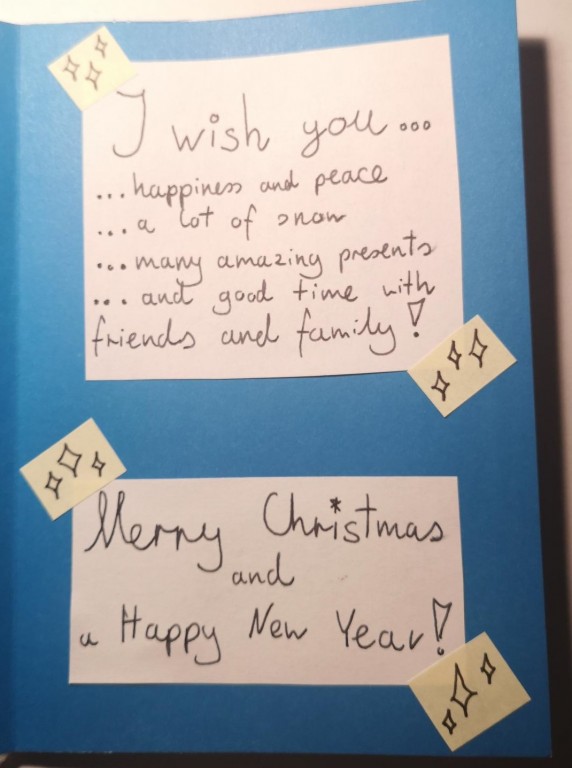 I wish you...
...happiness and peace
...a lot of snow
...many amazing presents
...and good time with
friends and family!
Merry Christmas
and
a Happy New Year!